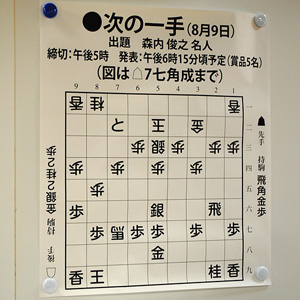 ●次の一手(8月9日)
出題　森内 俊之 名人
締切:午後5時　発表:午後6時15分頃予定(賞品5名)
(図は☖7七角成まで)
9 8 7 6 5 4 3 2 1
香 桂 香 一
と 王 金 二
歩 銀 歩 歩 三
歩 歩 歩 歩 四
歩 五
歩 銀 飛 六
歩 馬 歩 歩 歩 歩 七
金 八
香 王 桂 香 九
☗先手　持駒　飛角金歩
☖後手　持駒　金銀2桂2歩